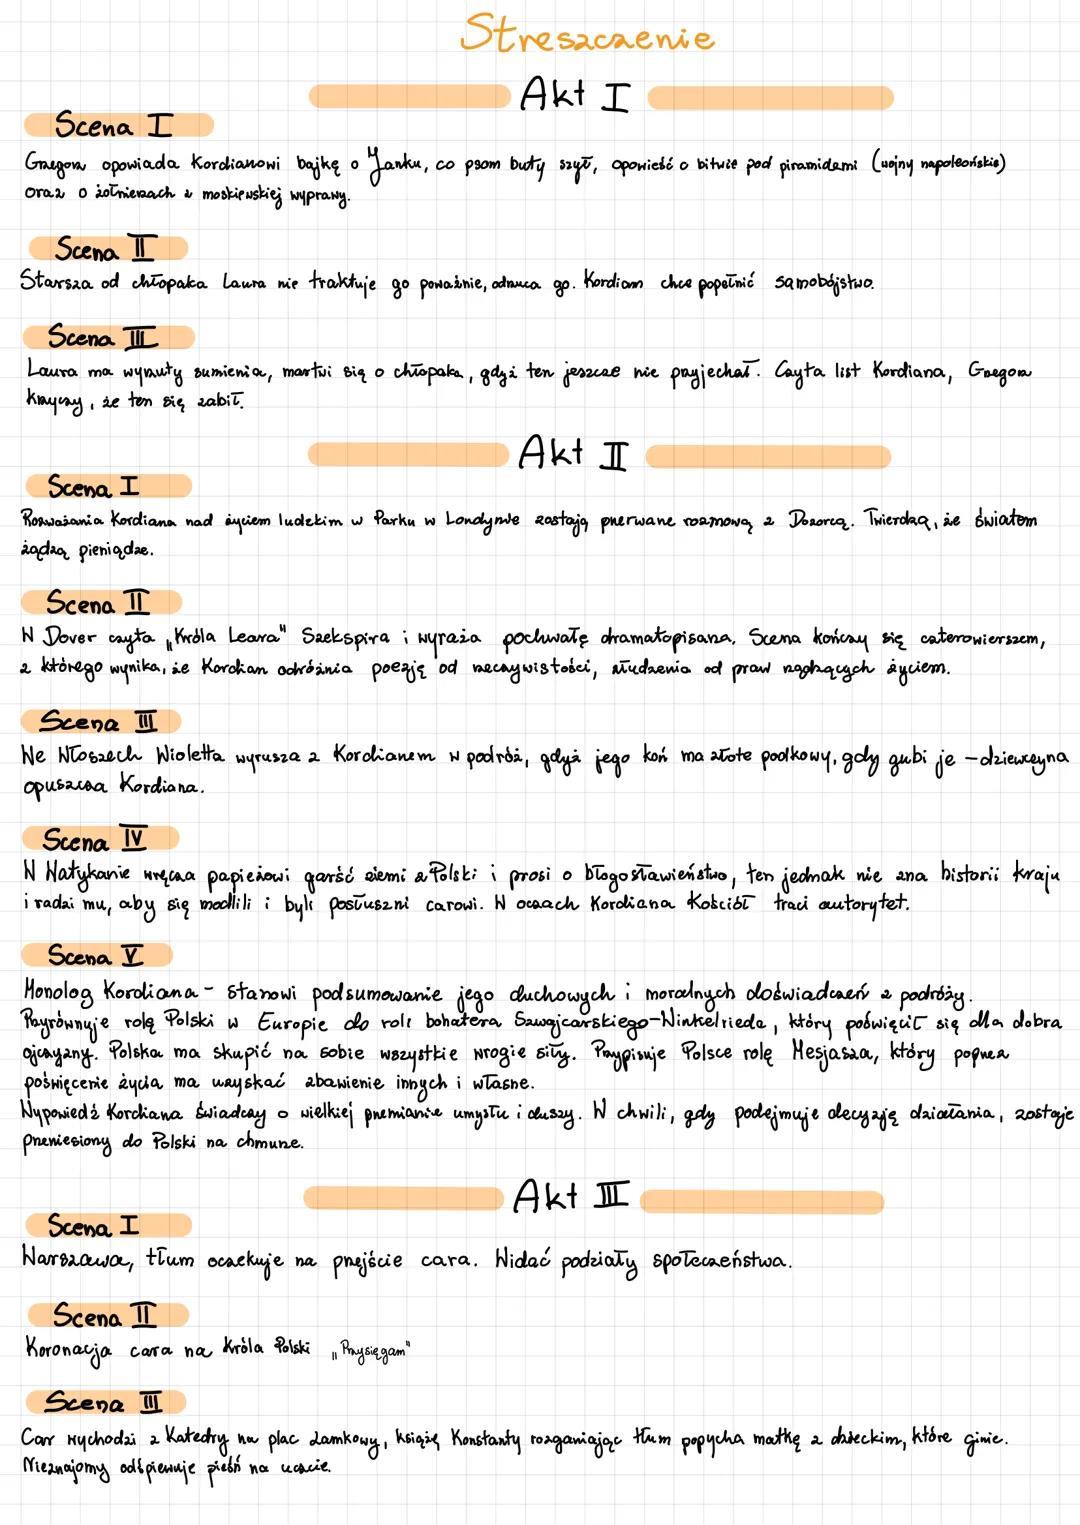 Streszczenie
Akt I
Scena I
Grzegorz opowiada Kordianowi bajkę o Janku, co psom buty szył, opowieść o bitwie pod piramidami (wojny napoleońskie)
oraz o żołnierzach z moskiewskiej wyprawy.
Scena II
Starsza od chłopaka Laura nie traktuje go poważnie, odrzuca go. Kordian chce popełnić samobójstwo.
Scena III
Laura ma wyrzuty sumienia, martwi się o chłopaka, gdyż ten jeszcze nie przyjechał. Czyta list Kordiana, Grzegorz
krzyczy, że ten się zabił.
Akt II
Scena I
Rozważania Kordiana nad życiem ludzkim w Parku w Londynie zostają przerwane rozmową z Dozorcą. Twierdzą, że światem
żądzą pieniądze.
Scena II
W Dover czyta „Króla Leara" Szekspira i wyraża pochwałę dramatopisarza. Scena kończy się czterowierszem,
z którego wynika, że Kordian odróżnia poezję od rzeczywistości, złudzenia od praw rządzących życiem.
Scena III
We Włoszech Wioletta wyrusza z Kordianem w podróż, gdyż jego koń ma złote podkowy, gdy gubi je - dziewczyna
opuszcza Kordiana.
Scena IV
W Watykanie wręcza papieżowi garść ziemi z Polski i prosi o błogosławieństwo, ten jednak nie zna historii kraju
i radzi mu, aby się modlili i byli posłuszni carowi. W oczach Kordiana Kościół traci autorytet.
Scena V
Monolog Kordiana - stanowi podsumowanie jego duchowych i moralnych doświadczeń z podróży.
Przyrównuje rolę Polski w Europie do roli bohatera Szwajcarskiego-Winkelrieda, który poświęcił się dla dobra
ojczyzny. Polska ma skupić na sobie wszystkie wrogie siły. Przypisuje Polsce rolę Mesjasza, który poprzez
poświęcenie życia ma uzyskać zbawienie innych i własne.
Wypowiedź Kordiana świadczy o wielkiej przemianie umysłu i duszy. W chwili, gdy podejmuje decyzję działania, zostaje
przeniesiony do Polski na chmurze.
Akt III
Scena I
Warszawa, tłum oczekuje na przejście cara. Widać podziały społeczeństwa.
Scena II
Koronacja cara na Króla Polski „Przysięgam"
Scena III
Car wychodzi z Katedry na plac zamkowy, książę Konstanty rozganiając tłum popycha matkę z dzieckim, które ginie.
Nieznajomy odśpiewuje pieśń na uczcie.